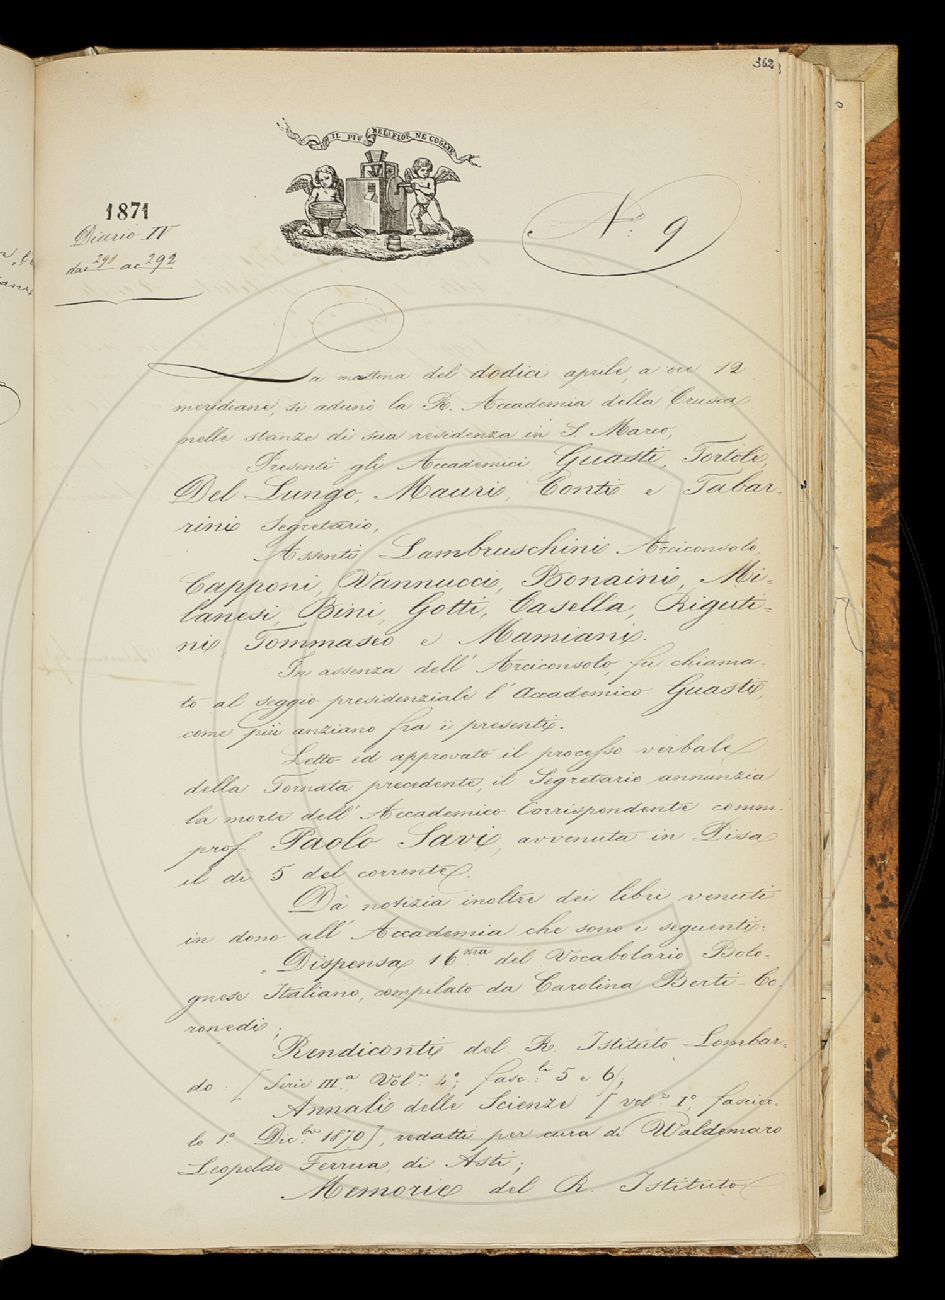 362
IL PIÙ BEL FIOR NE COGLIE
1871
Diario IV
dac 291 ac 292
N.° 9
La mattina del dodici aprile, a ore 12
meridiane, si adunò la R. Accademia della Crusca
nelle stanze di sua residenza in S. Marco,
Presenti gli Accademici Guasti, Tortoli,
Del Lungo, Mauri, Conti e Tabar-
rini Segretario,
Assenti Lambruschini Arciconsolo,
Capponi, Vannucci, Bonaini, Mi-
lanesi, Bini, Gotti, Casella, Riguti-
ni Tommaseo e Mamiani.
In assenza dell' Arciconsolo, fu chiama-
to al seggio presidenziale l' Accademico Guasti,
come più anziano fra i presenti.
Letto ed approvato il processo verbale
della Tornata precedente, il Segretario annunzia
la morte dell' Accademico Corrispondente comm.
prof. Paolo Savi, avvenuta in Pisa
il dì 5 del corrente.
Dà notizia inoltre dei libri venuti
in dono all' Accademia che sono i seguenti:
Dispensa 16.ma del Vocabolario Bolo-
gnese Italiano, compilato da Carolina Berti-Co-
ronedi;
Rendiconti del R. Istituto Lombar-
do: [Serie III.a Vol.e 4°; fasc.li 5 e 6],
Annali delle Scienze [vol.e I°, fascico-
lo 1° Dic.bre 1870], redatti per cura di Waldemaro
Leopoldo Ferrua, di Asti;
Memorie del R. Istituto